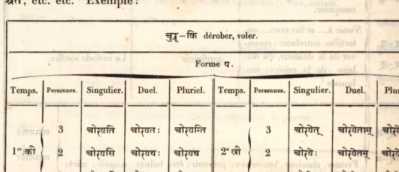 etc. etc. Exemple:
चुर्–कि dérober, voler.
Forme प.
Temps. Personnes. Singulier. Duel. Pluriel. Temps. Personnes. Singulier. Duel.
3 चोरयति चोरयतः चोरयन्ति 3 चोरयेत् चोरयेताम्
2 चोरयसि चोरयथः चोरयथ 2 चोरयेः चोरयेतम्